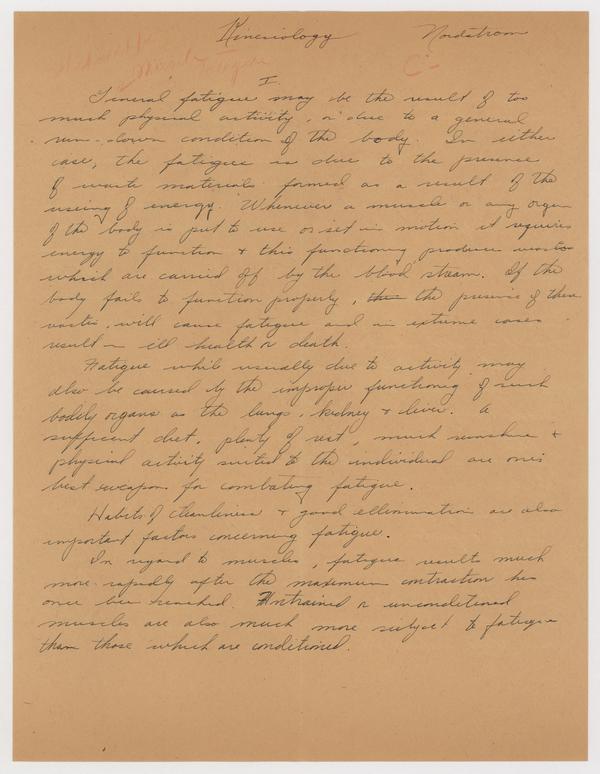 Kinesiology Nordstrom
Muscle Fatigue C-
I
General fatigue may be the result of too
much physical activity, or due to a general
run-down condition of the body. In either
case, the fatigue is due to the presense
of waste materials formed as a result of the
useing of energy. Whenever a muscle or any organ
of the body is put to use or set in motion it requires
energy to function + this functioning produces wastes
which are carried off by the blood stream. If the
body fails to function properly, the presense of these
wastes, will cause fatigue and in extreme cases
result in ill health or death.
Fatigue while usually due to activity may
also be caused by the improper functioning of such
bodily organs as the lungs, kidney + liver. A
sufficient diet, plenty of rest, much sunshine +
physical activity suited to the individual are one's
best weapons for combating fatigue.
Habits of cleanliness + good elimination are also
important factors concerning fatigue.
In regard to muscles, fatigue results much
more rapidly after the maximum contraction has
once been reached. Untrained or unconditioned
muscles are also much more subject to fatigue
than those which are conditioned.